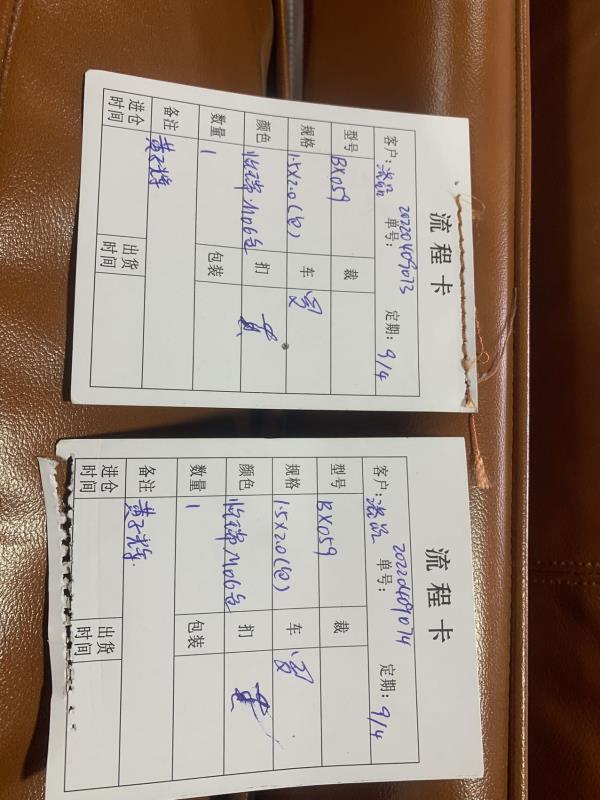 流程卡
客户: 单号: 20220409073 定期: 9/4
型号 BX059 裁
规格 1.5X2.0(包) 车
颜色 M06包 扣
数量 1 包装
备注 黄子辉
进仓时间 出货时间
流程卡
客户: 单号: 20220409074 定期: 9/4
型号 BX059 裁
规格 1.5X2.0(包) 车
颜色 M06包 扣
数量 1 包装
备注 黄子辉
进仓时间 出货时间